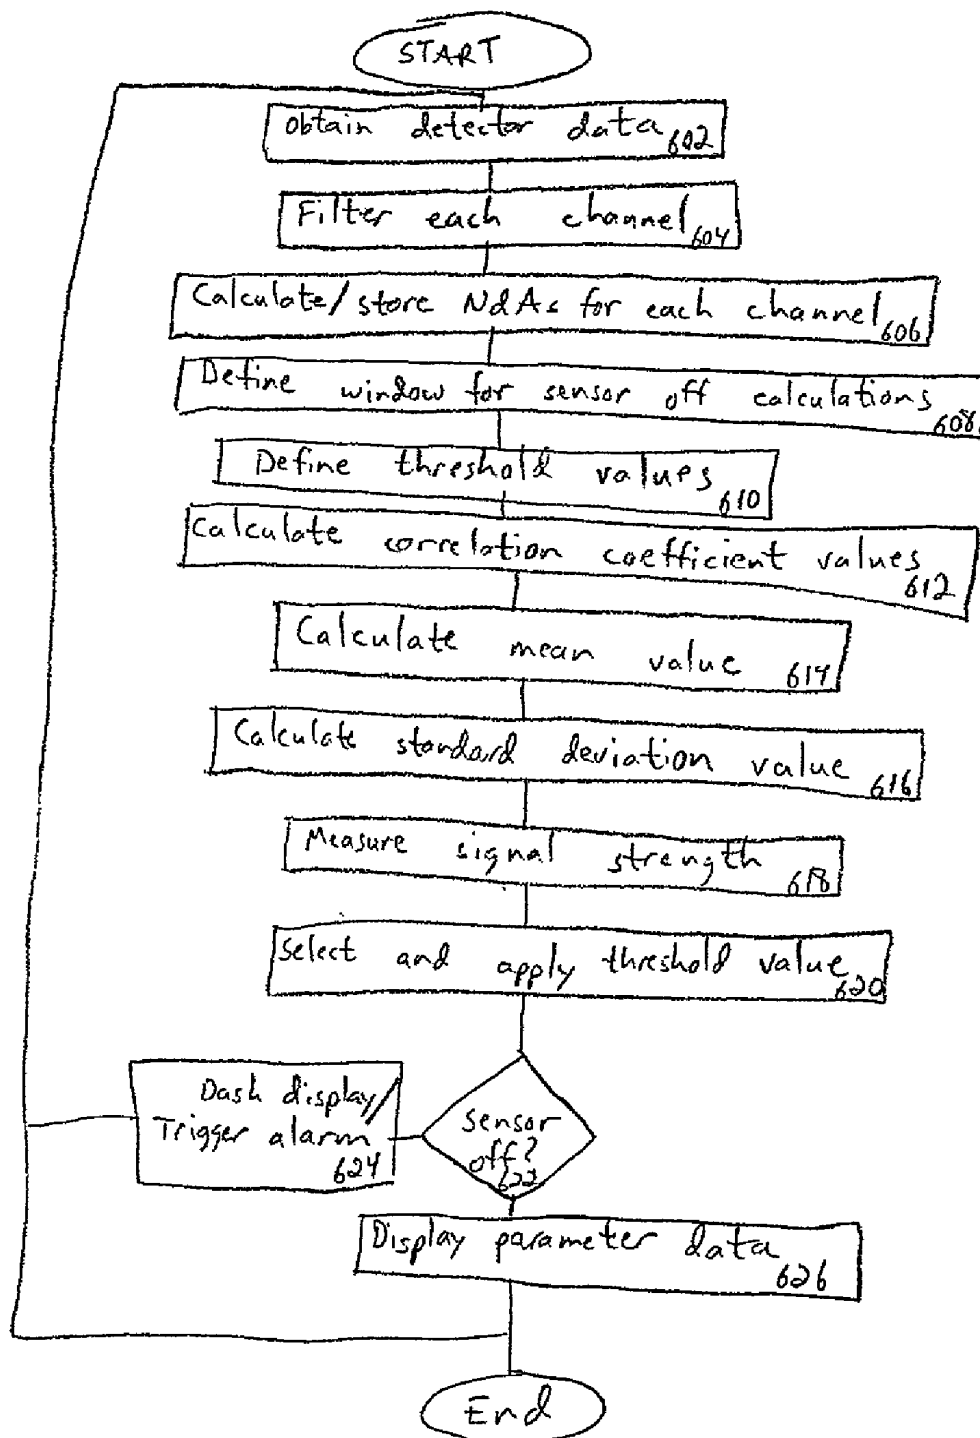 START
Obtain detector data 602
Filter each channel 604
Calculate/store NdAs for each channel 606
Define window for sensor off calculations 608
Define threshold values 610
Calculate correlation coefficient values 612
Calculate mean value 614
Calculate standard deviation value 616
Measure signal strength 618
Select and apply threshold value 620
Dash display/
Trigger alarm
624
sensor
off?
622
Display parameter data 626
End